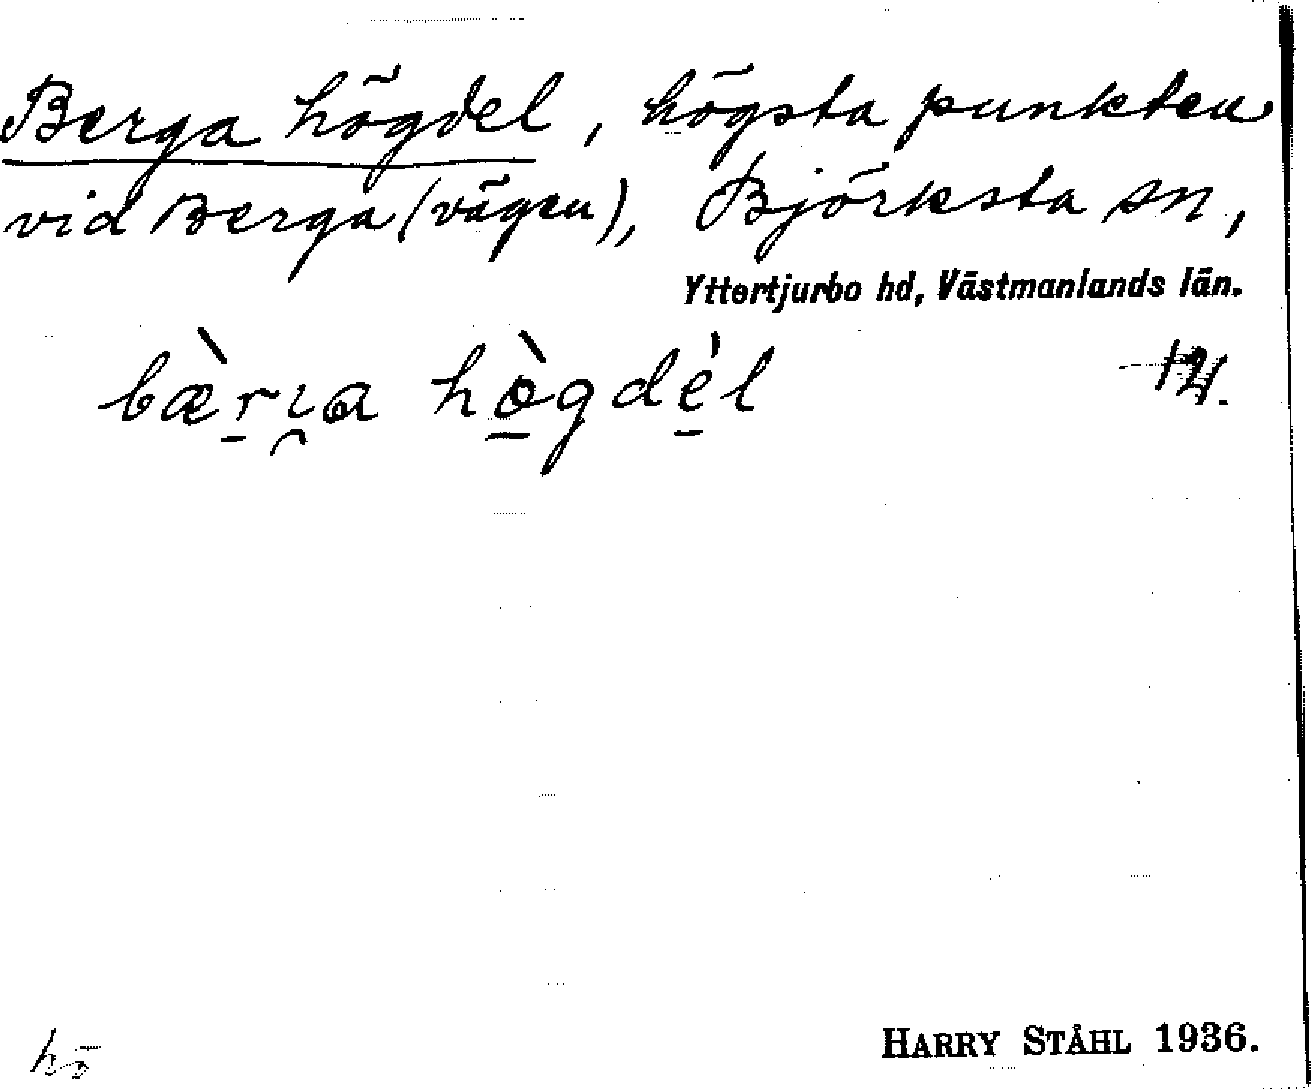 Berga högdel, högsta punkten
vid Berga (vägen), Björksta sn,
Yttertjurbo hd, Västmanlands län.
bæ̀r̠ı̯a hò̠gdè̠l
HARRY STÅHL 1936.